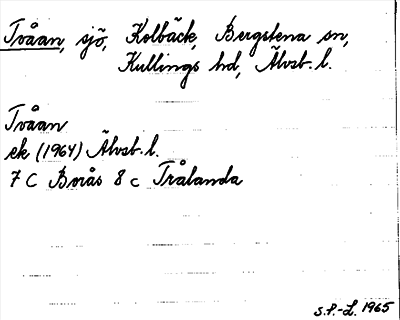 Tvåan, sjö, Kolbäck, Bergstena sn,
Kullings hd, Älvsb. l.
Tvåan
ek (1964) Älvsb. l.
7 C Borås 8 c Trålanda
S.P.-L. 1965